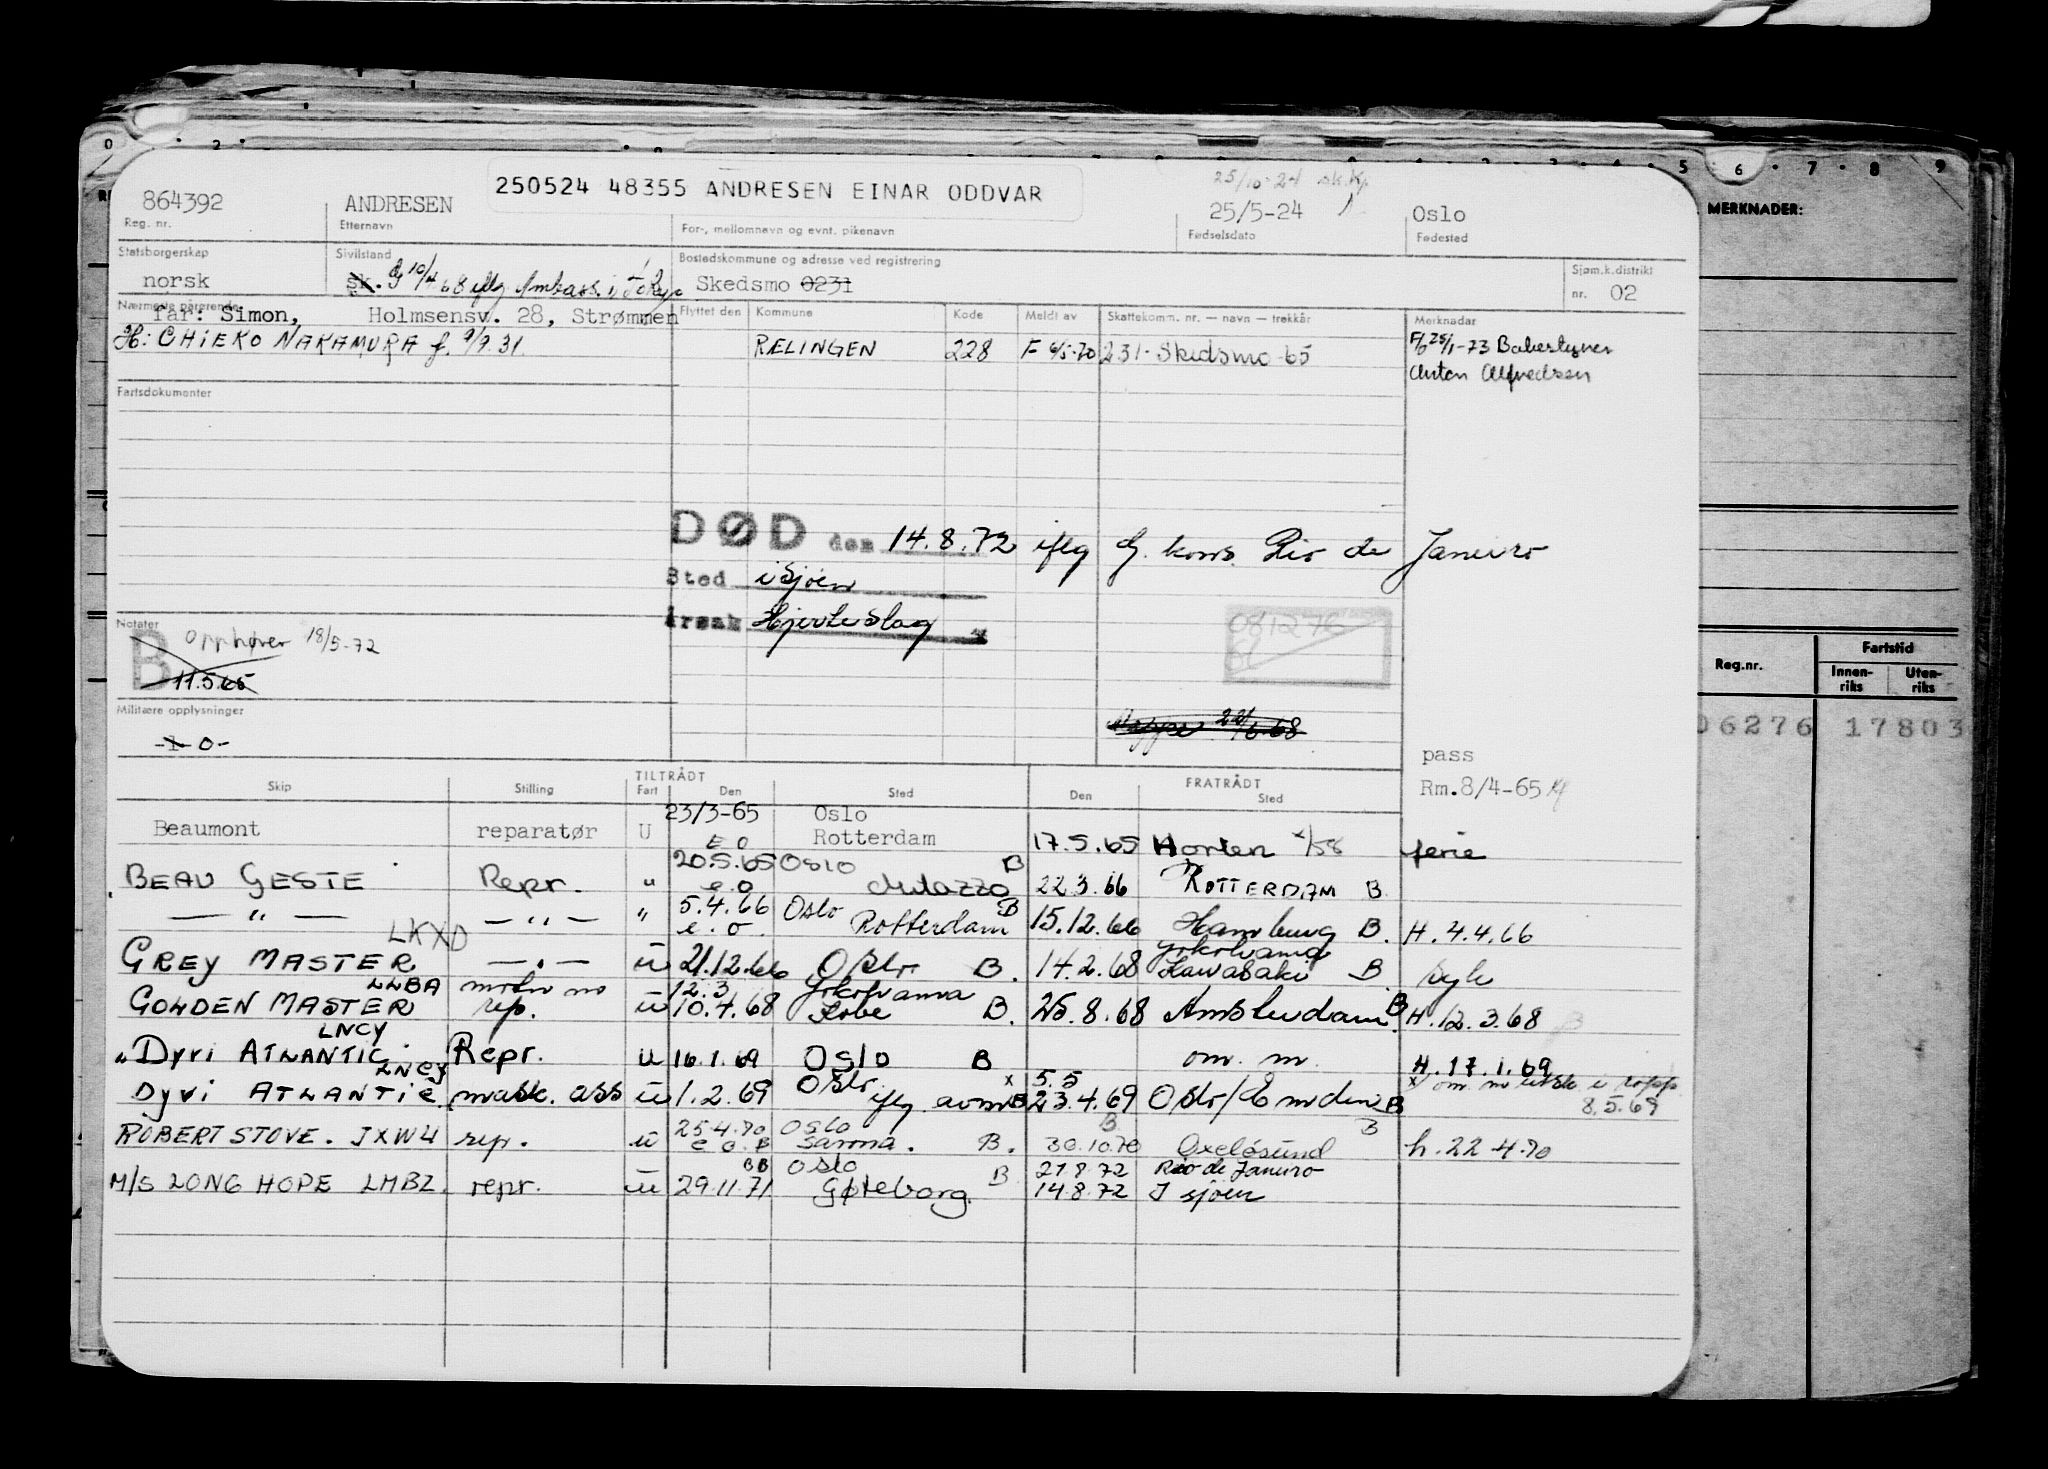 250524 48355 ANDRESEN EINAR ODDVAR
25/10-24 sk.kf.
864392 ANDRESEN 25/5-24 Oslo
Reg. nr. Etternavn For-, mellomnavn og evnt. pikenavn Fødselsdato Fødested
Statsborgerskap Sivilstand Bostedskommune og adresse ved registrering Sjøm.k.distrikt
norsk sk. G 10/4 68 iflg Ambass. i Tokyo Skedsmo 0231 nr. 02
Nærmeste pårørende Flyttet den Kommune Kode Meldt av Skattekomm. nr. — navn — trekkår Merknader
far: Simon, Holmsensv. 28, Strømmen
H: CHIEKO NAKAMURA f. 9/9.31. RÆLINGEN 228 F 6/5-70 231-Skedsmo-65 F/O 25/1-73 Bobestyrer
Anton Alfredsen
Fartsdokumenter
DØD den 14.8.72 iflg G. kons. Rio de Janeiro
Sted i sjøen
Årsak Hjerteslag
Notater
B Opphører 18/5-72
11.5.65
081276
Militære opplysninger
-1- 0-
22/6.68
pass
Rm.8/4-65
Skip Stilling TILTRÅDT Fart Den Sted FRATRÅDT Den Sted
23/3-65 Oslo
Beaumont reparatør U E O Rotterdam 17.5.65 Horten ferie
20.5.65 Oslo B
BEAU GESTE Repr. " e.o Milazzo 22.3.66 ROTTERDAM B
5.4.66 Oslo B
— " — — " — " e.o. Rotterdam 15.12.66 Hamburg B. H.4.4.66
LKXD Yokohama
GREY MASTER — " — u 21.12.66 Oslo B. 14.2.68 Kawasaki B syk
LLBA motor 12.3 Yokohama
GOLDEN MASTER rep. u 10.4.68 Kobe B. 25.8.68 Amsterdam B H.12.3.68
LNCY
DYVI ATLANTIC. Repr. u 16.1.69 OSLO B om. m. H.17.1.69
LNCY Oslo x 5.5
DYVI ATLANTIC. mask. ass u 1.2.69 iflg B 23.4.69 Oslo/Emden B x om. m
8.5.69
25.4.70 Oslo B B
ROBERT STOVE. JXWU rep. u e o. B samma. B. 30.10.70 Oxeløsund h.22-4-70
BB Oslo 27.8.72 Rio de Janeiro
M/S LONG HOPE LMBZ. repr. u 29.11.71 Gøteborg. B 14.8.72 I sjøen
0 2 5 6 7 8 9
MERKNADER:
Reg.nr. Fartstid
Innen-riks Uten-riks
06276 17803